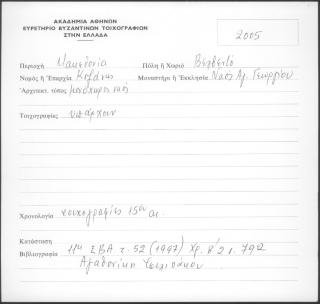 ΑΚΑΔΗΜΙΑ ΑΘΗΝΩΝ
ΕΥΡΕΤΗΡΙΟ ΒΥΖΑΝΤΙΝΩΝ ΤΟΙΧΟΓΡΑΦΙΩΝ
ΣΤΗΝ ΕΛΛΑΔΑ
2005
Περιοχή Μακεδονία Πόλη ἤ Χωριό Βελβεντό
Νομός ἤ Ἐπαρχία Κοζάνης Μοναστήρι ἤ Ἐκκλησία Ναός Αγ. Γεωργίου
Ἀρχιτεκτ. τύπος μονόχωρος ναός
Τοιχογραφίες υπάρχουν
Χρονολογία τοιχογραφίες 15ου αι.
Κατάσταση
Βιβλιογραφία ΣΒΑ τ. 52 (1997) Χρ. Β΄2 σ. 792
Αγαθονίκη